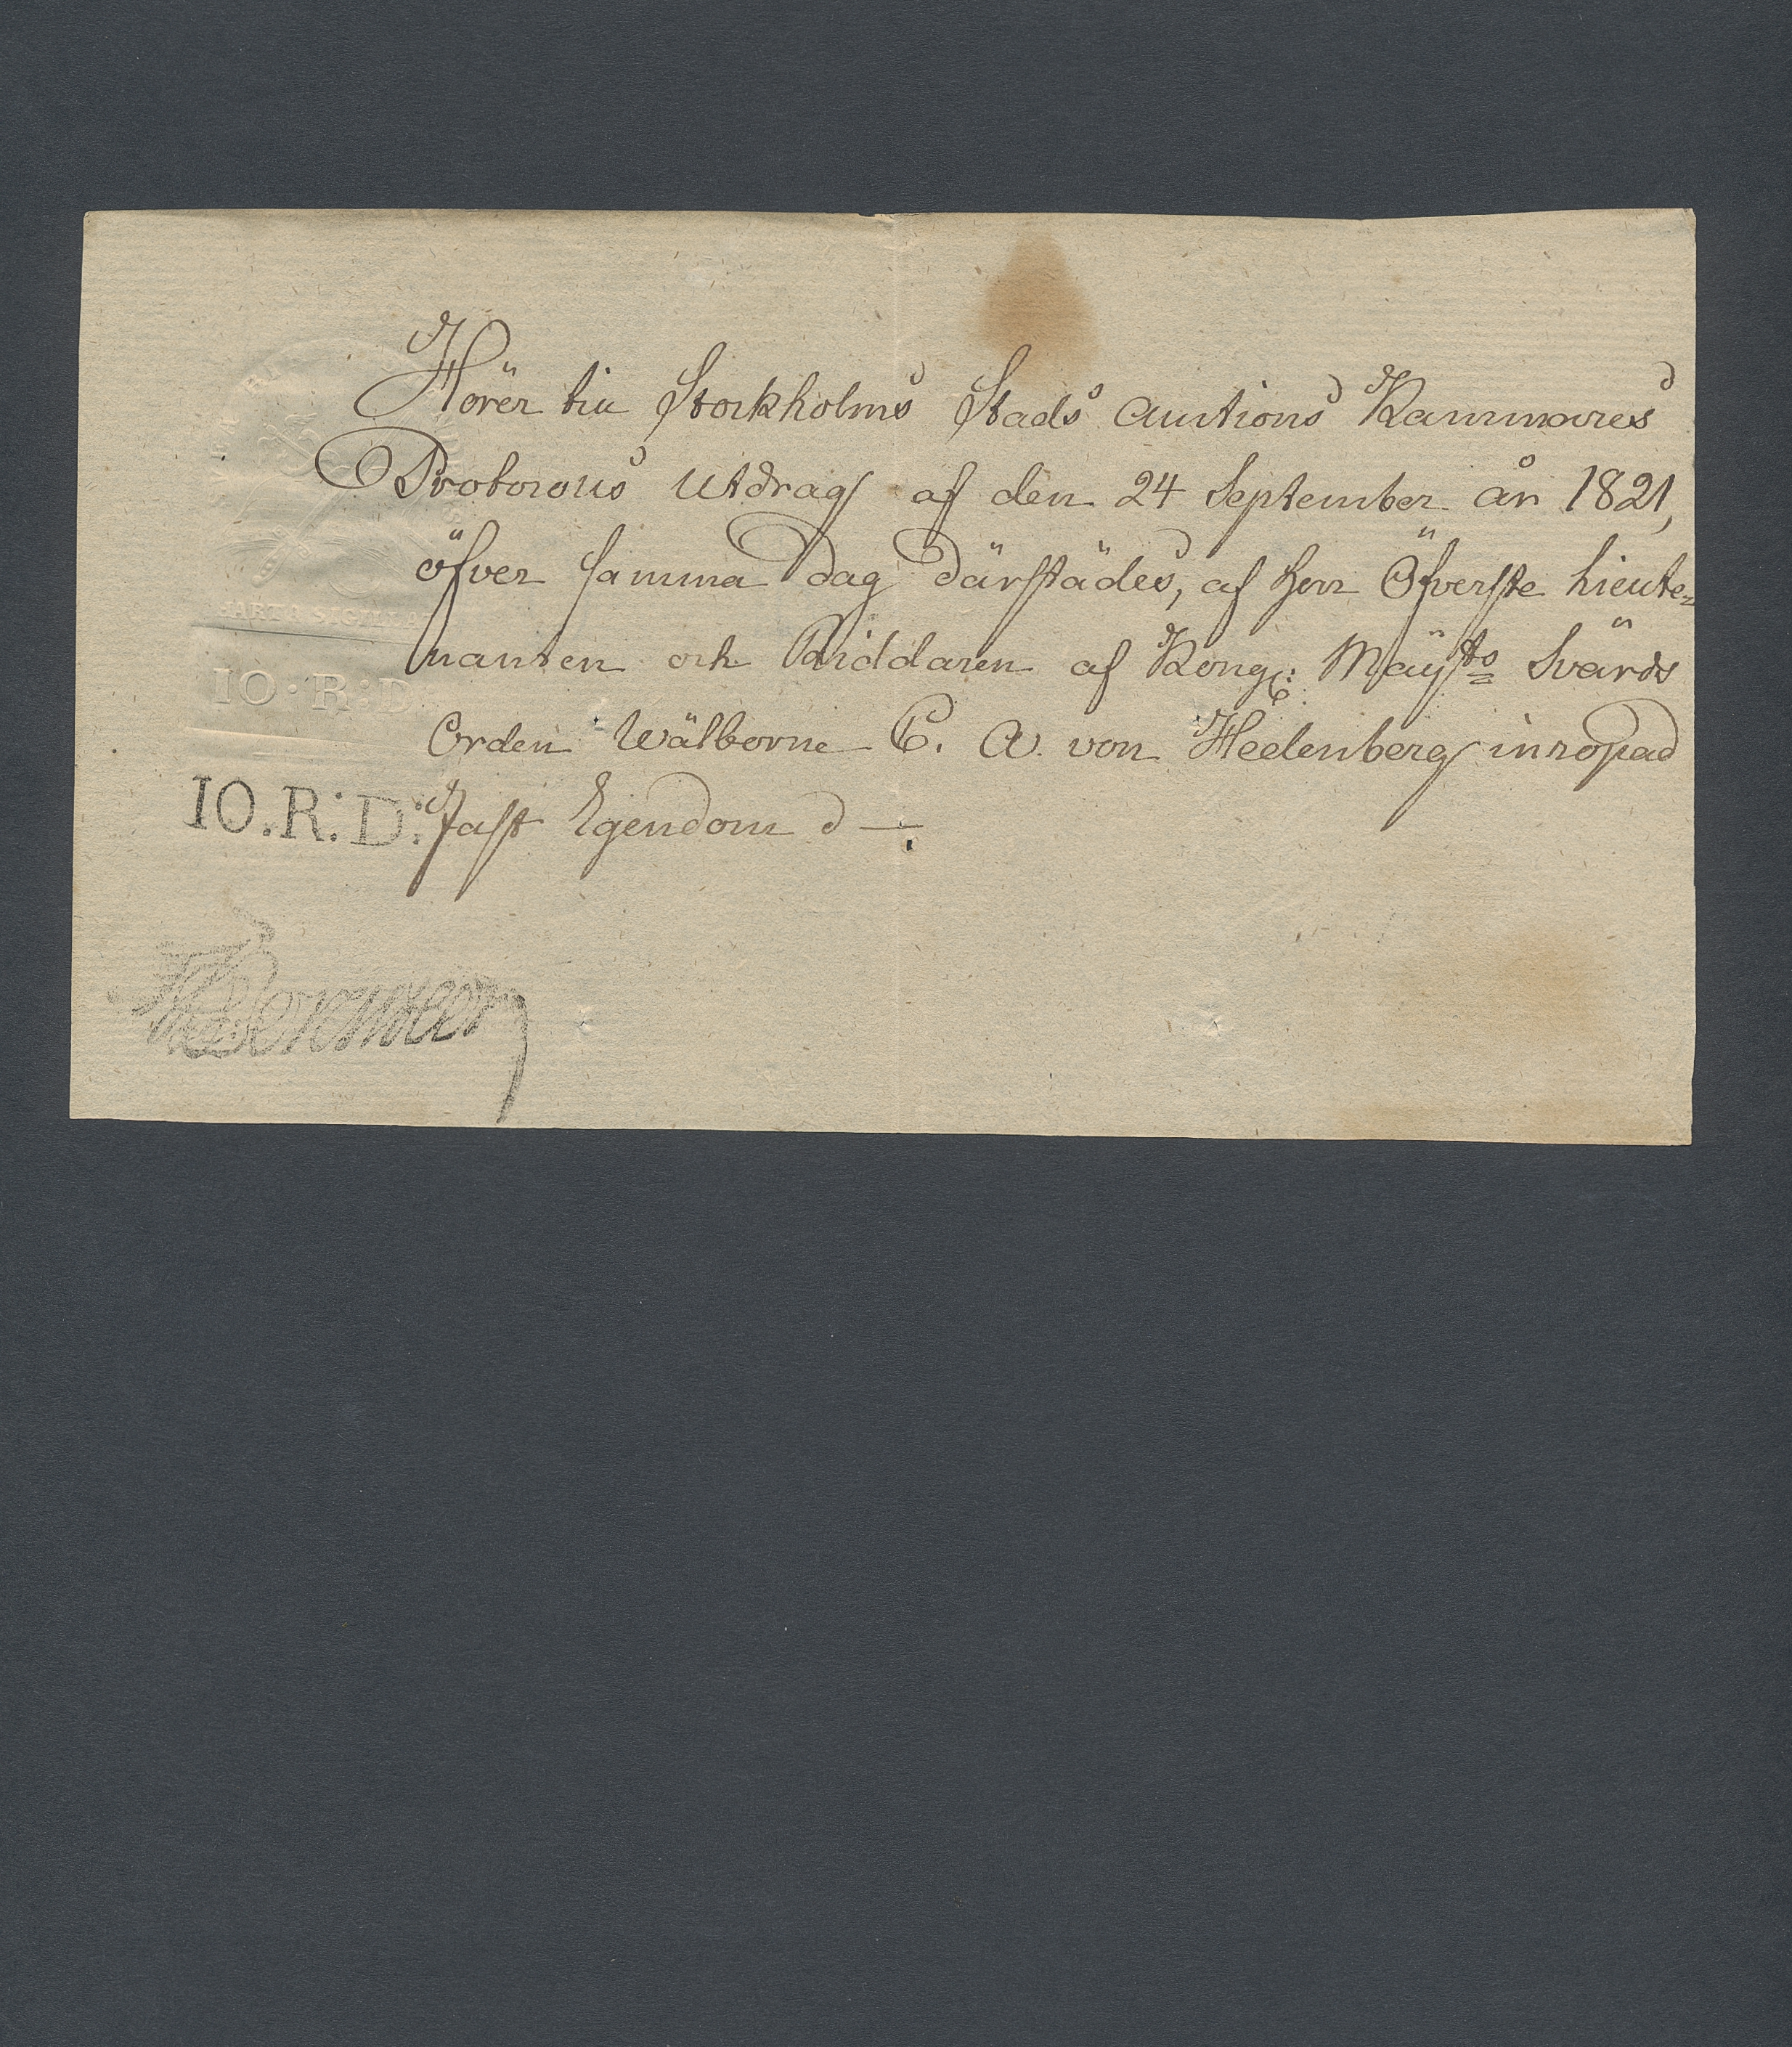 Hörer till Stockholms Stads Auctions Kammares
Protocolls Utdrag af den 24 September år 1821,
öfver samma dag därstädes, af Herr Öfverste Lieute=
nanten och Riddaren af Kongl: Maÿts Svärds
Orden Wälborne C. A. von Heelenberg inropad
Fast Egendom
CHARTA SIGILLATA
10·R:D
10.R:D: